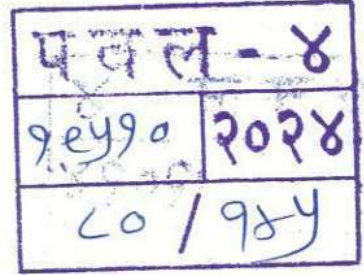 पवल - ४
१९५१० २०२४
८० / १४५